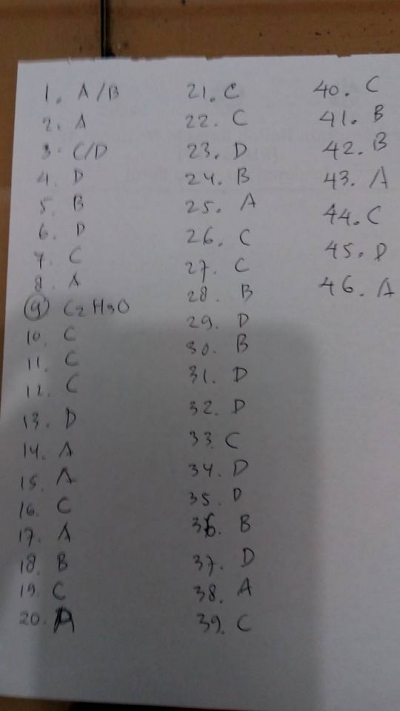 1. A/B
2. A
3. C/D
4. D
5. B
6. D
7. C
8. A
9 C2H9O
10. C
11. C
12. C
13. D
14. A
15. A
16. C
17. A
18. B
19. C
20. A
21. C
22. C
23. D
24. B
25. A
26. C
27. C
28. B
29. D
30. B
31. D
32. D
33 C
34. D
35. D
36. B
37. D
38. A
39. C
40. C
41. B
42. B
43. A
44. C
45. D
46. A